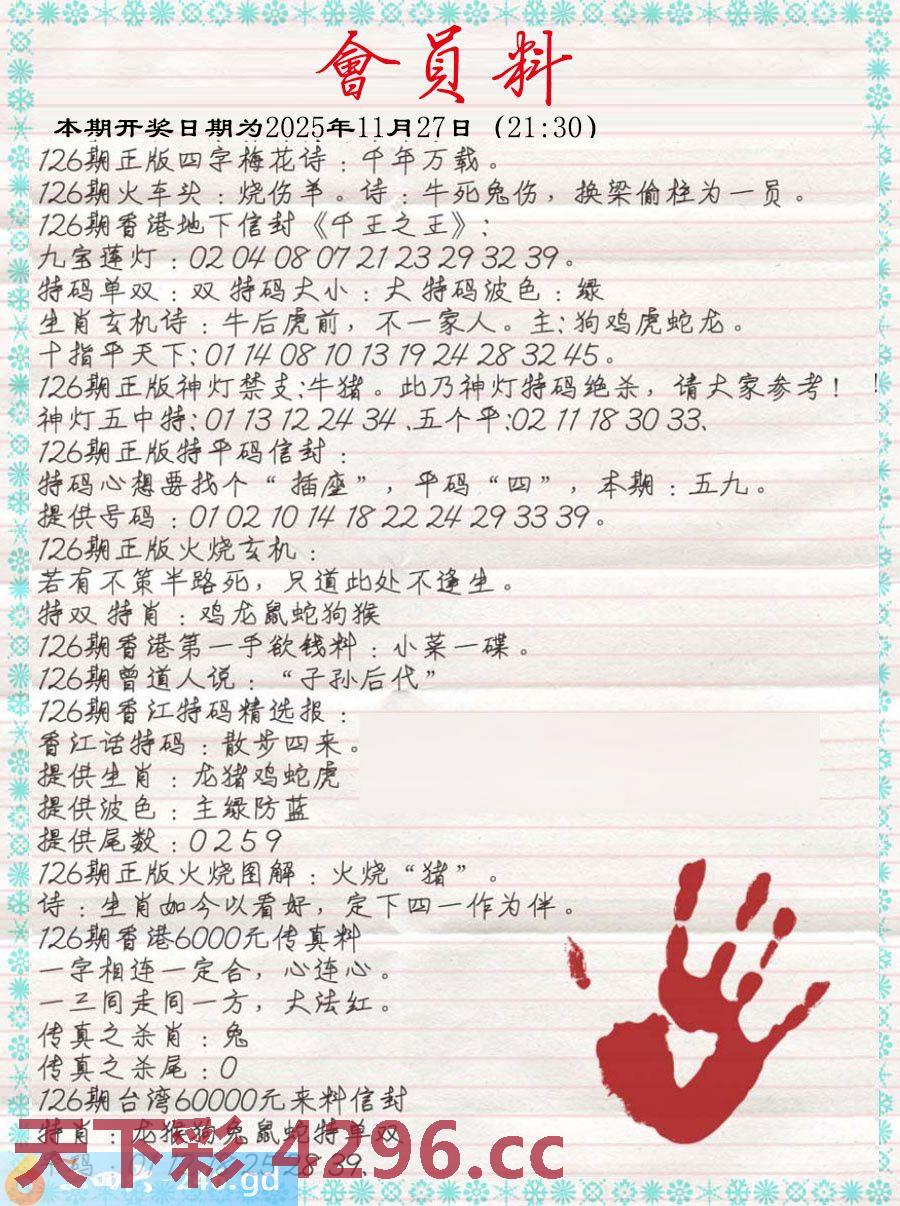 會員料
本期开奖日期为2025年11月27日（21:30）
126期正版四字梅花诗：千年万载。
126期火车头：烧伤羊。诗：牛死兔伤，换梁偷柱为一员。
126期香港地下信封《千王之王》：
九宝莲灯：02 04 08 07 21 23 29 32 39。
特码单双：双 特码大小：大 特码波色：绿
生肖玄机诗：牛后虎前，不一家人。主：狗鸡虎蛇龙。
十指平天下：01 14 08 10 13 19 24 28 32 45。
126期正版神灯禁支:牛猪。此乃神灯特码绝杀，请大家参考！！
神灯五中特：01 13 12 24 34、五个平:02 11 18 30 33、
126期正版特平码信封：
特码心想要找个“插座”，平码“四”，本期：五九。
提供号码：01 02 10 14 18 22 24 29 33 39。
126期正版火烧玄机：
若有不策半路死，只道此处不逢生。
特双 特肖：鸡龙鼠蛇狗猴
126期香港第一手欲钱料：小菜一碟。
126期曾道人说：“子孙后代”
126期香江特码精选报：
香江话特码：散步四来。
提供生肖：龙猪鸡蛇虎
提供波色：主绿防蓝
提供尾数：0 2 5 9
126期正版火烧图解：火烧“猪”。
诗：生肖如今以看好，定下四一作为伴。
126期香港6000元传真料
一字相连一定合，心连心。
一三同走同一方，大法红。
传真之杀肖：兔
传真之杀尾：0
126期台湾60000元来料信封
特肖：龙猴狗兔鼠蛇特单双
25 28 39、
天下彩 4296.cc
246.gd